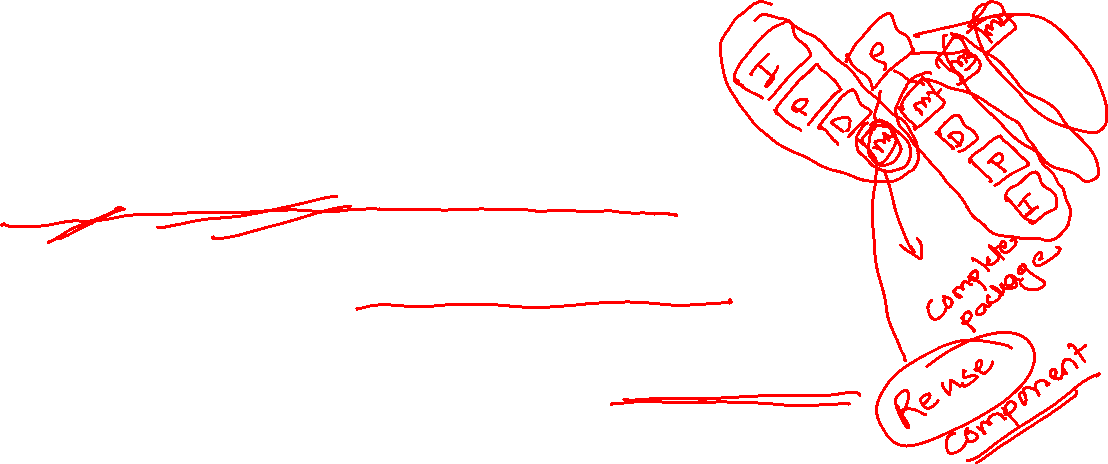 I
P
D
P
D
P
I
Complete
package
Reuse
component